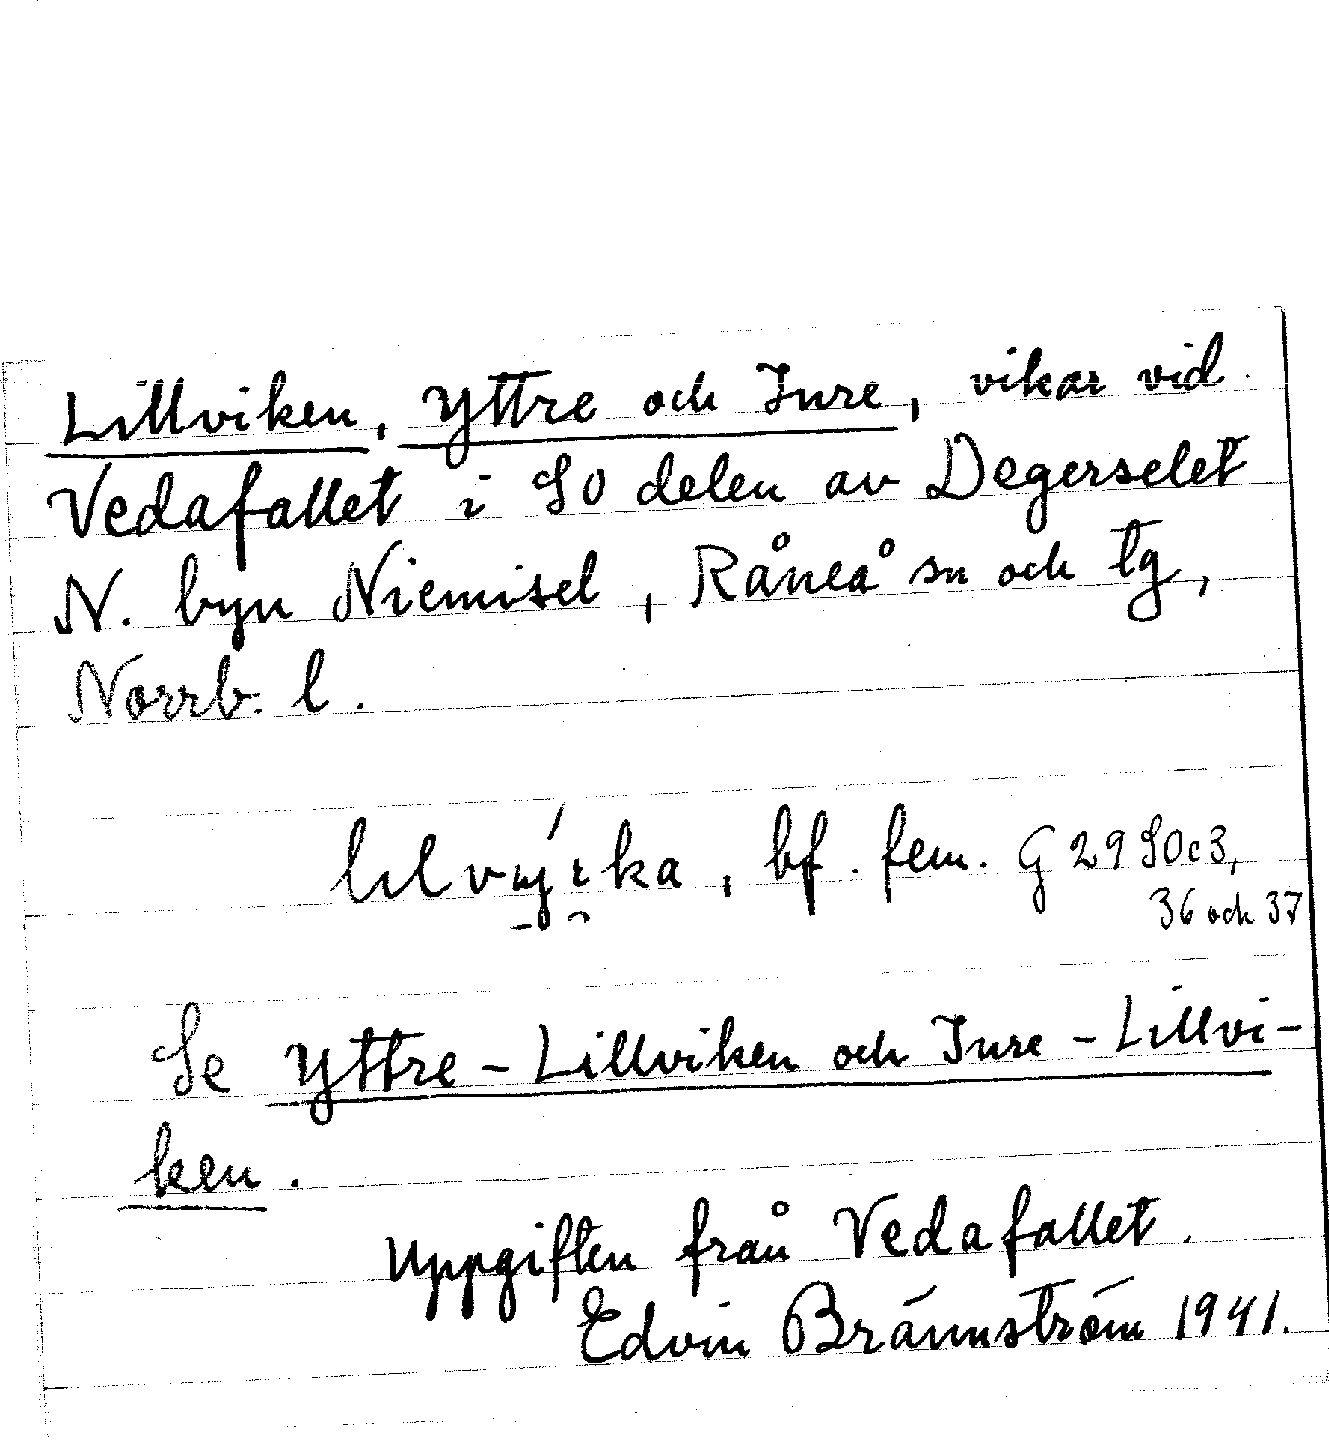 Lillviken, Yttre och Inre, vikar vid
Vedafallet i SO delen av Degerselet
N. byn Niemisel, Råneå sn och tg,
Norrb. l.
bf. fem. G 29 SO c 3,
36 och 37
Se Yttre-Lillviken och Inre-Lillvi-
ken.
Uppgiften från Vedafallet.
Edvin Brännström 1941.